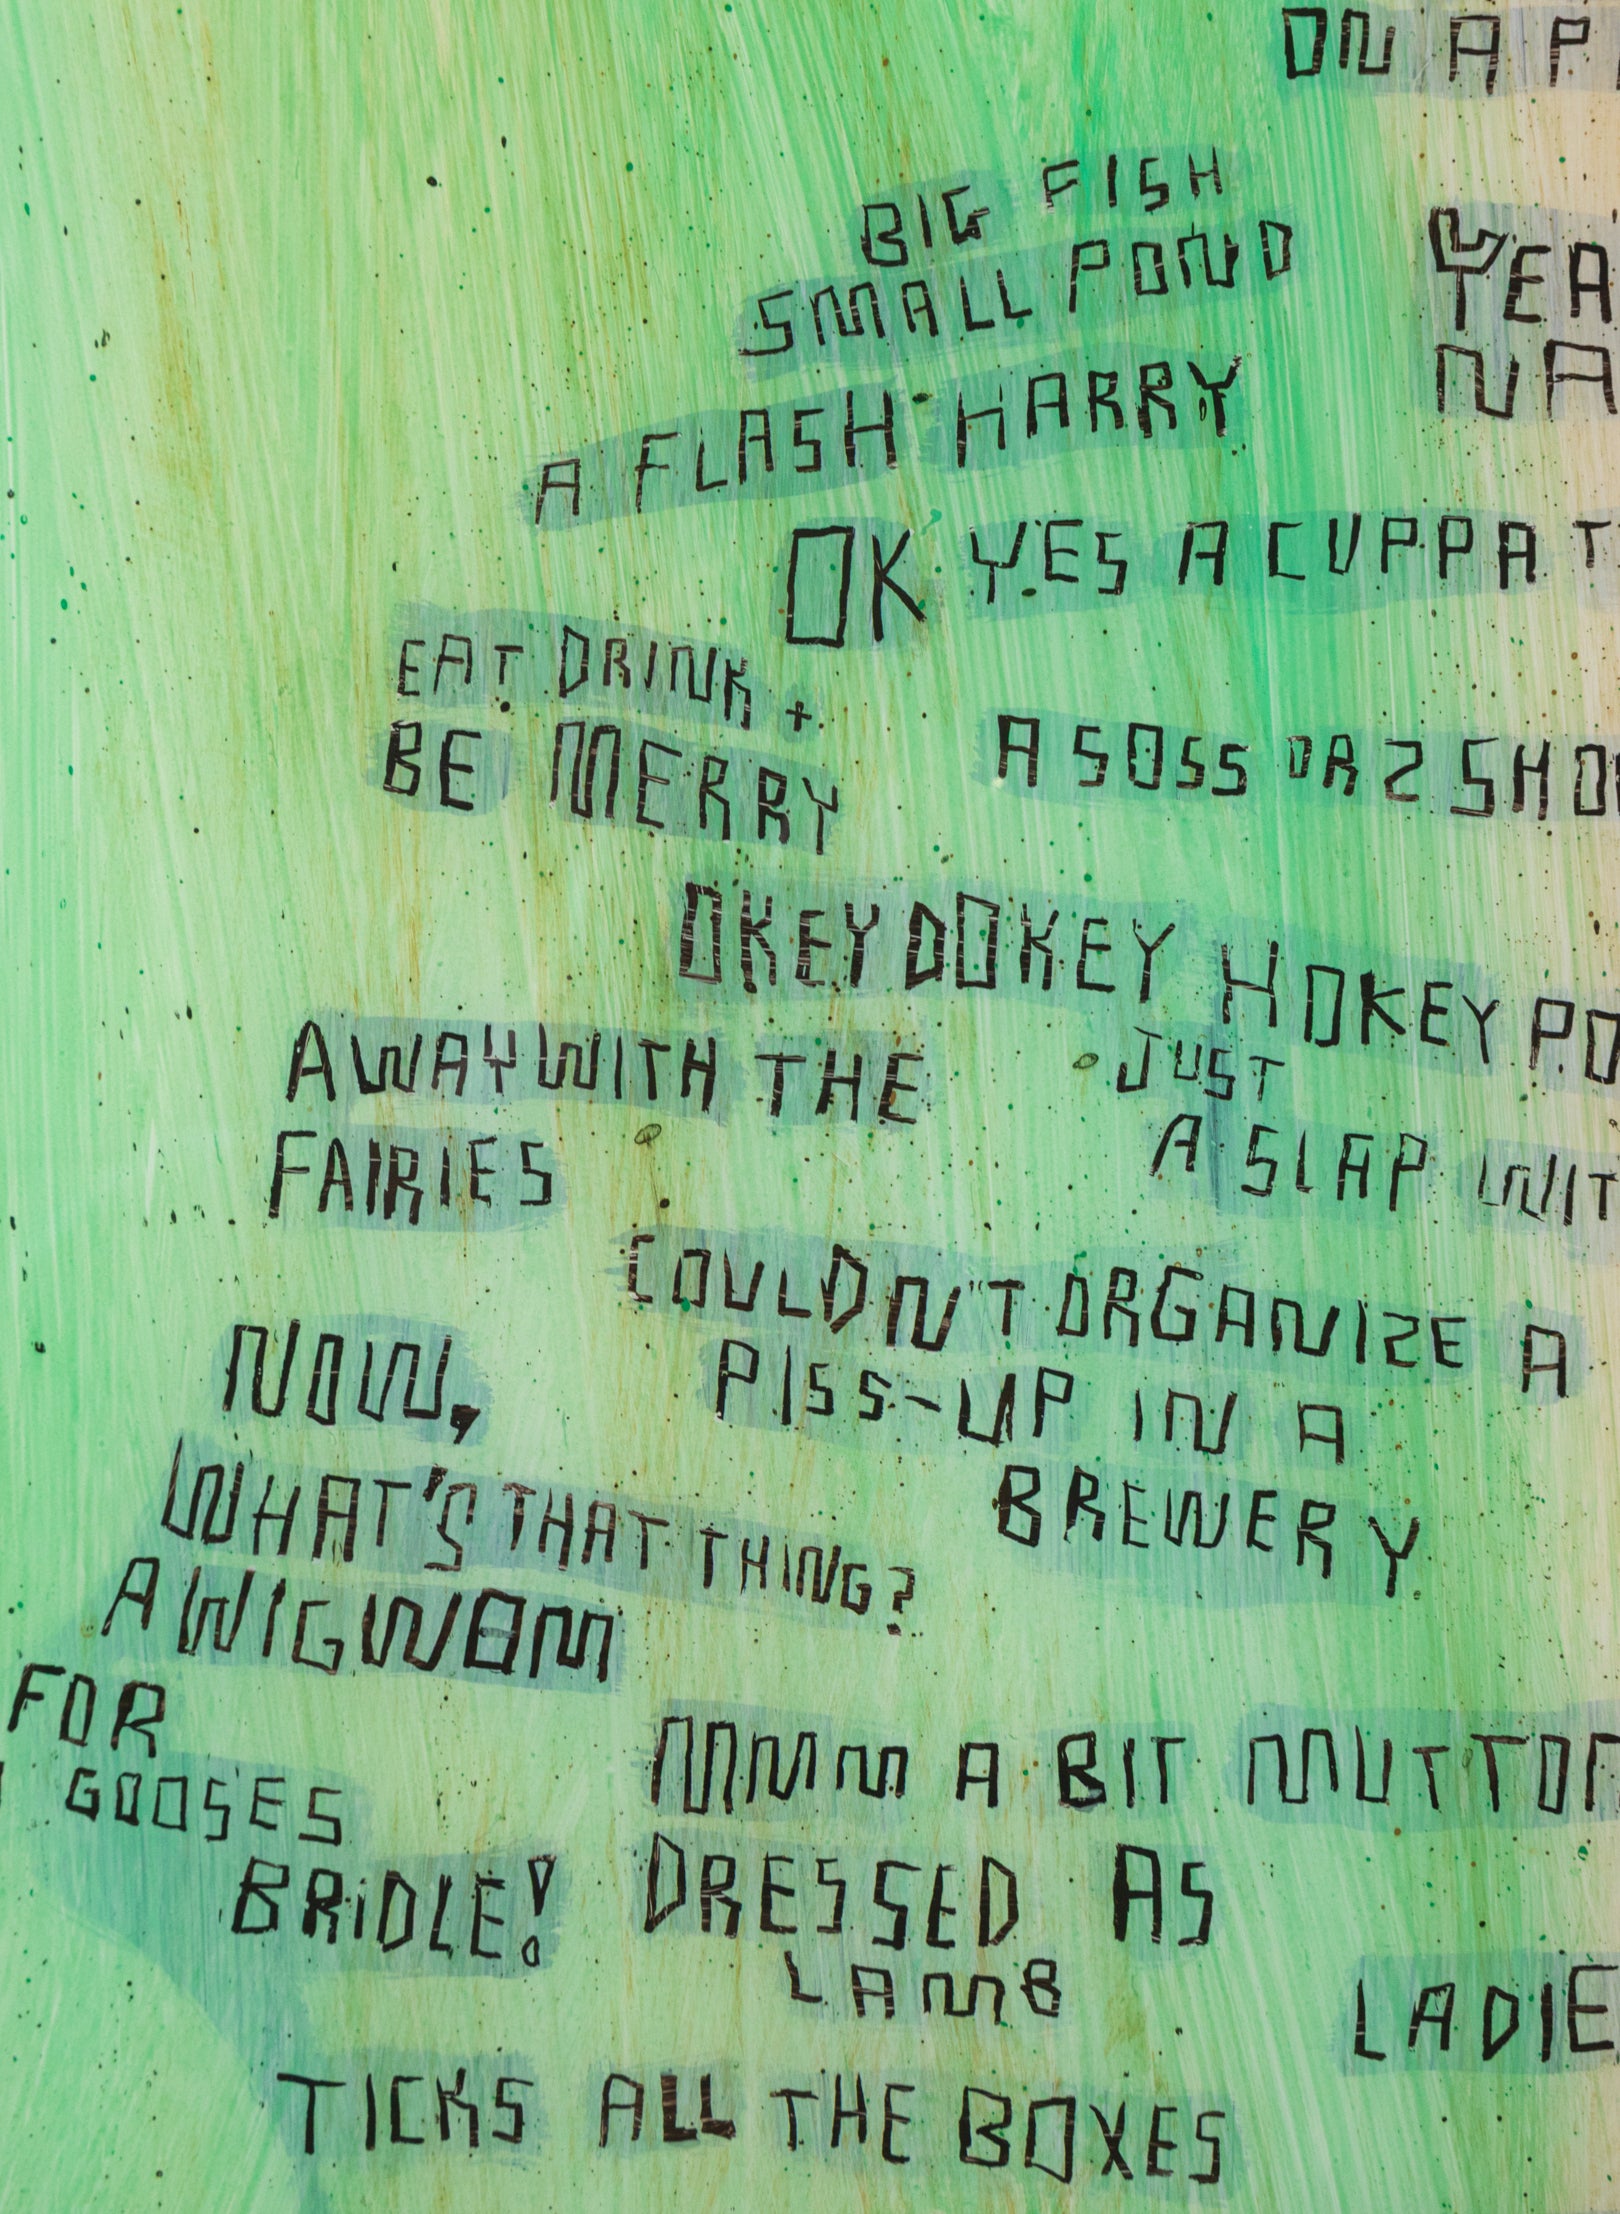 ON A P
BIG FISH
SMALL POND
YEA
NA
A FLASH HARRY
OK YES A CUPPA T
EAT DRINK +
BE MERRY
A SOSS OR 2 SHO
OKEY DOKEY HOKEY PO
AWAY WITH THE
FAIRIES
JUST
A SLAP WIT
COULDN'T ORGANIZE A
PISS-UP IN A
BREWERY
NOW,
WHAT'S THAT THING?
A WIGWAM
FOR
GOOSES
BRIDLE!
MMM A BIT MUTTON
DRESSED AS
LAMB
LADIE
TICKS ALL THE BOXES